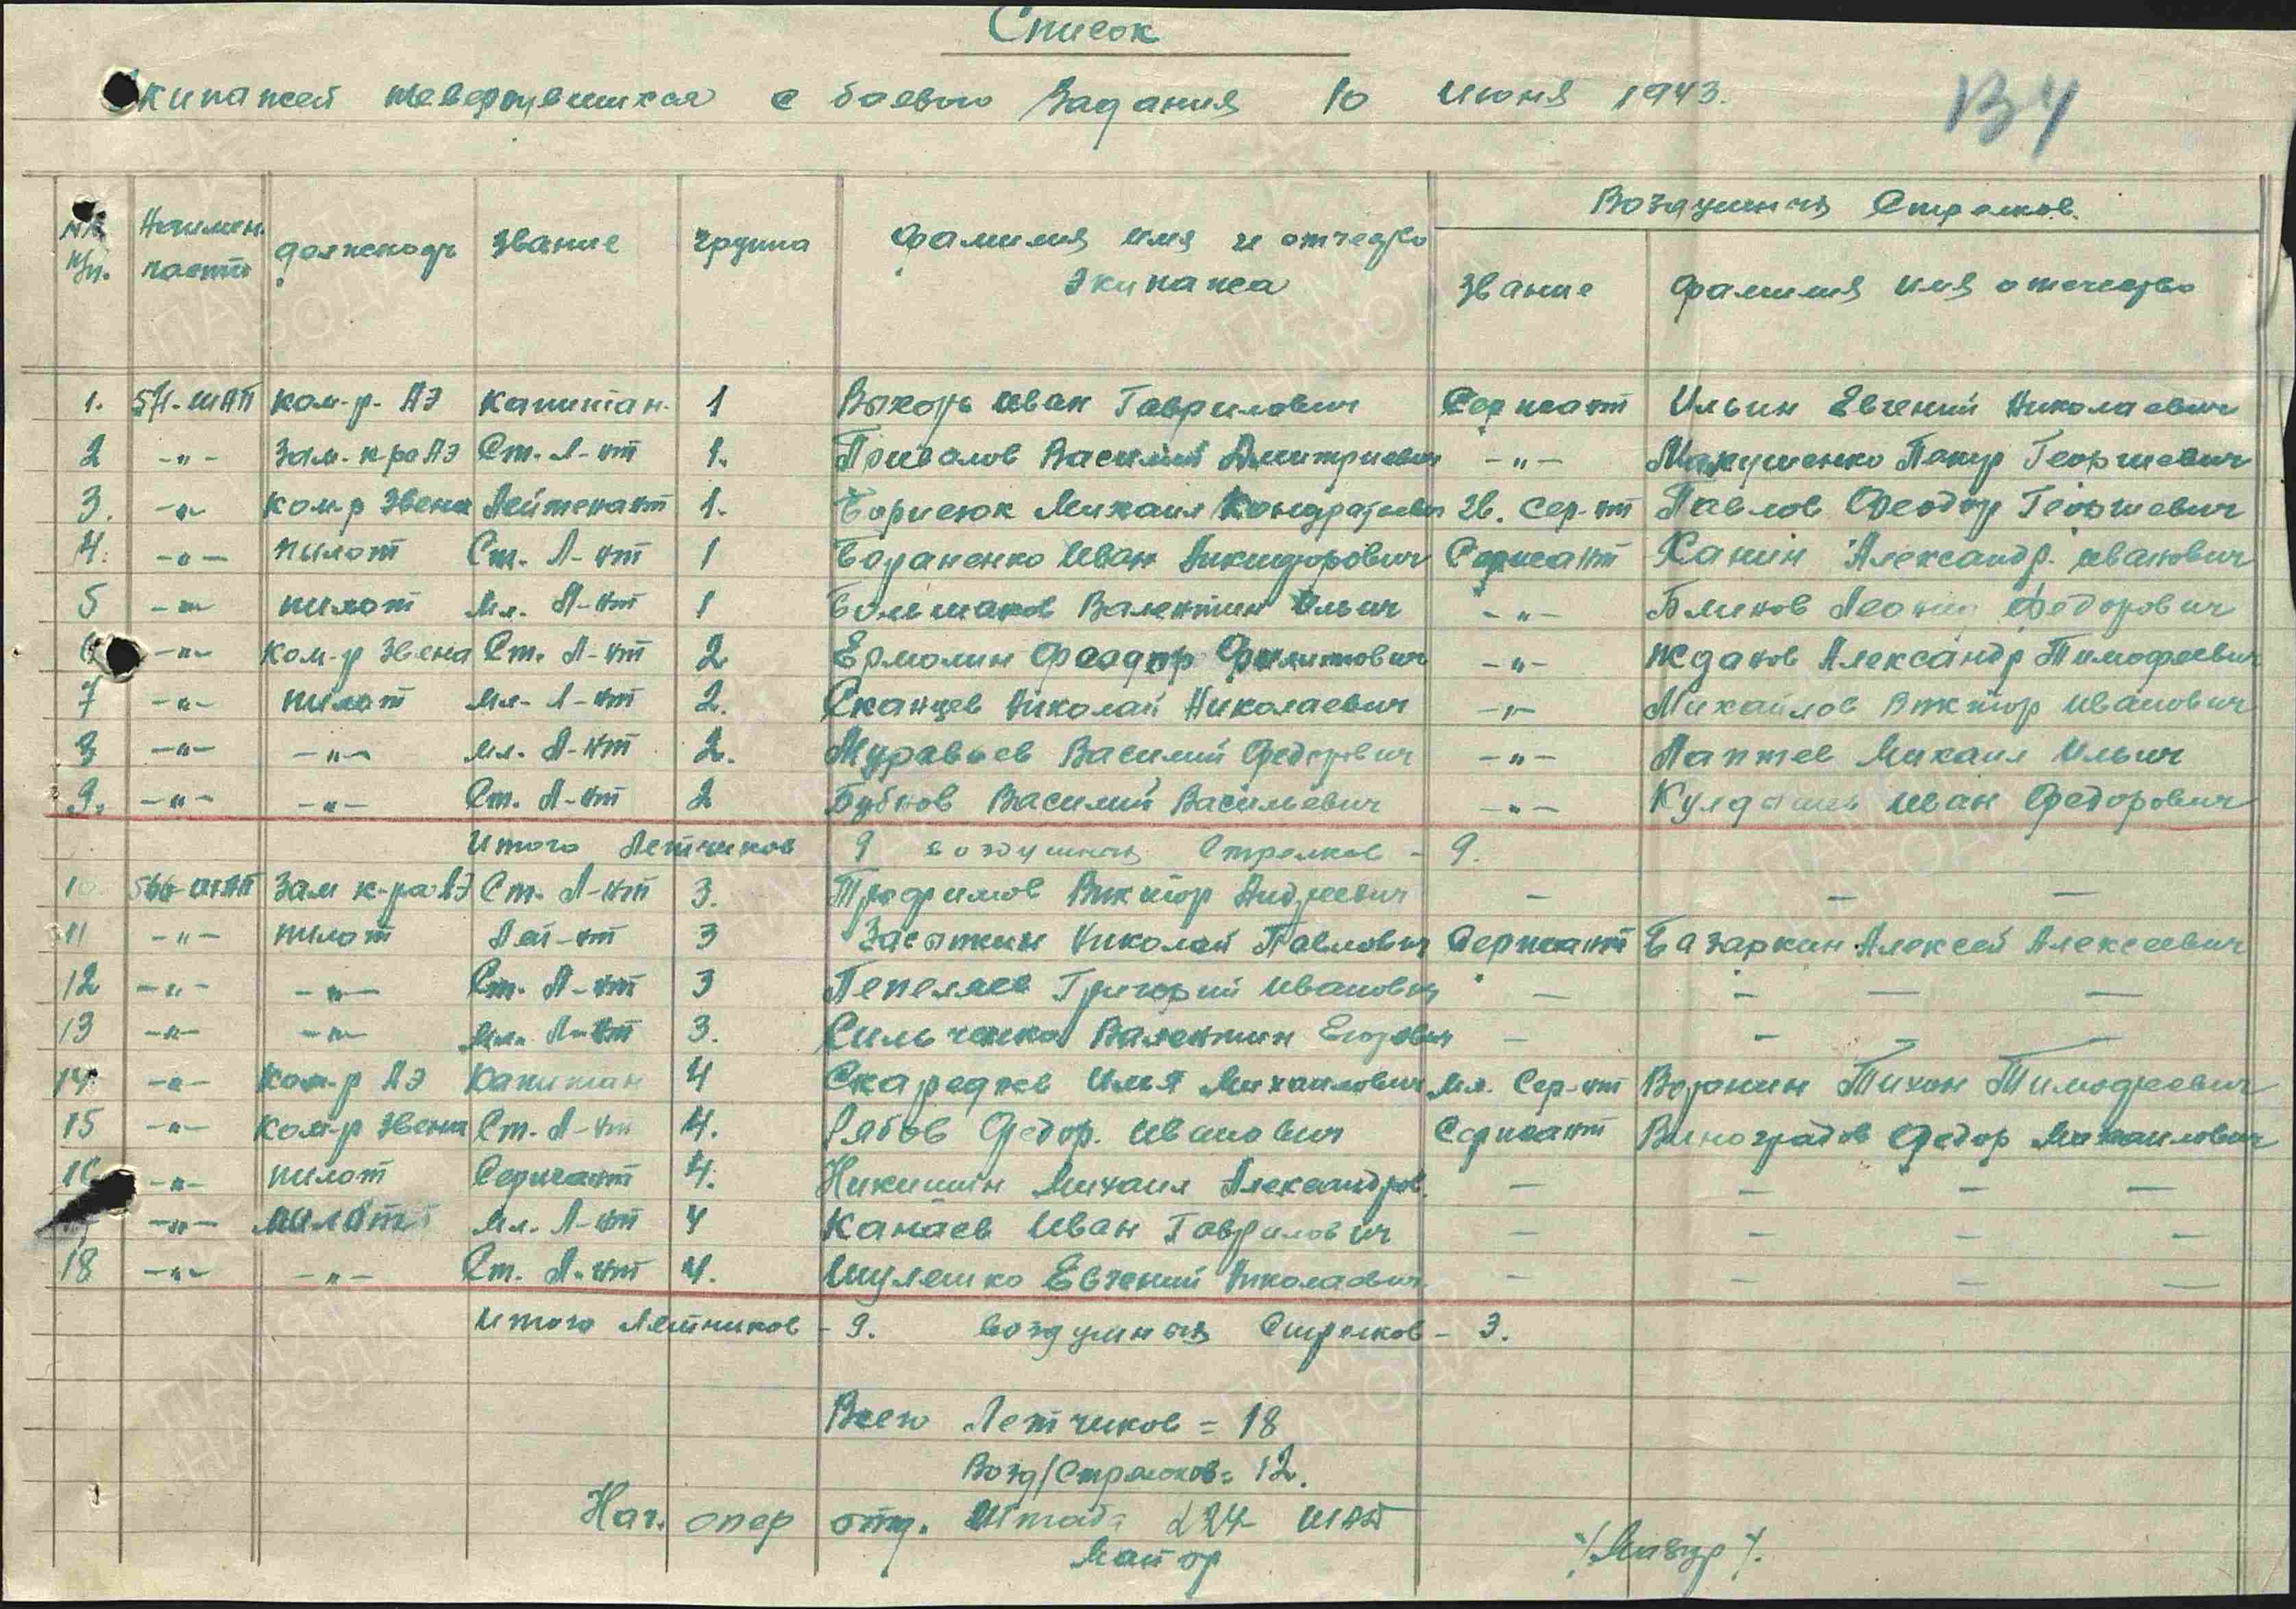 Список
Экипажей невернувшихся с боевого Задания 10 Июня 1943.
134
№№ п/п. Наимен. части должность Звание группа фамилия имя и отчество Экипажа Воздушных Стрелков.
Звание фамилия имя отчество
1. 571-ШАП ком-р. АЭ капитан. 1 Иван Гаврилович Сержант Ильин Евгений Николаевич
2 -"- Зам. к-ра АЭ Ст. Л-нт 1. Привалов Василий Дмитриевич -"- Макушенко Петр Георгиевич
3. -"- ком-р Звена Лейтенант 1. Борисюк Михаил Кондратьевич Гв. Сер-нт Павлов Феодор Георгиевич
4. -"- пилот Ст. Л-нт 1 Бараненко Иван Никифорович Сержант Ханин Александр. Иванович
5 -"- пилот Мл. Л-нт 1 Большаков Валентин Ильич -"- Блинов Леонид Федорович
6 -"- ком-р Звена Ст. Л-нт 2 Ермолин Феодор Филиппович -"- Жданов Александр Тимофеевич
7 -"- пилот Мл. Л-нт 2. Сканцев Николай Николаевич -"- Михайлов Виктор Иванович
8 -"- -"- Мл. Л-нт 2. Муравьев Василий Федорович -"- Лаптев Михаил Ильич
9. -"- -"- Ст. Л-нт 2 Бубнов Василий Васильевич -"- Иван Федорович
Итого Летчиков 9 воздушных Стрелков - 9.
10 566-ШАП Зам к-ра АЭ Ст. Л-нт 3. Трофимов Виктор Андреевич — — —
11 -"- пилот Лей-нт 3 Засыпкин Николай Павлович Сержант Базаркин Алексей Алексеевич
12 -"- -"- Ст. Л-нт 3 Пепеляев Григорий Иванович — — — —
13 -"- -"- Мл. Л-нт 3. Сильченко Валентин Егорович — — — —
14. -"- ком-р АЭ Капитан 4 Скареднев Илья Михайлович Мл. Сер-нт Воронин Тихон Тимофеевич
15 -"- ком-р Звена Ст. Л-нт 4. Рябов Федор. Иванович Сержант Виноградов Федор Михайлович
16 -"- пилот Сержант 4. Никишин Михаил Александров. — — — —
-"- пилот Мл. Л-нт 4 Канаев Иван Гаврилович — — — —
18 -"- -"- Ст. Л-нт 4. Шулешко Евгений Николаевич — — — —
Итого Летчиков - 9. воздушных Стрелков - 3.
Всего Летчиков = 18
Возд/Стрелков = 12.
Нач. опер отд. Штаба 224 ШАД
Майор /Мазур/.